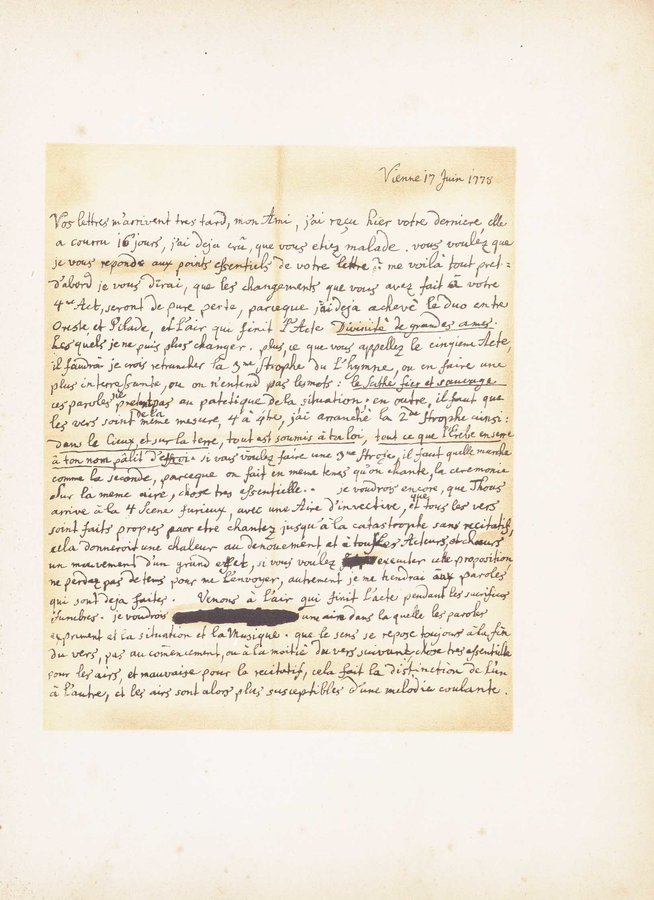 Vienne 17 Juin 1778
Vos lettres m'arrivent tres tard, mon Ami, j'ai reçu hier votre derniere, elle
a courru 16 jours, j'ai deja crû, que vous etiez malade, vous voulez que
je vous reponds aux points essentiels de votre lettre : me voilà tout pret =
d'abord je vous dirai, que les changements que vous avez fait à votre
4me Act, seront de pure perte, parceque j'ai deja achevé le duo entre
Oreste et Pilade, et l'air qui finit l'Acte Divinité de grandes ames.
Les quels je ne puis plus changer. plus, ce que vous appellez le cinqiem Acte
il faudra je crois retrancher la 3me Strophe du L'hymne, ou en faire une
plus interressante, ou on n'entend pas les mots: le Scithe fier et sauvage
ces paroles pas au patetique de la situation. en outre, il faut que
les vers soint de la meme mesure, 4 à 4tre, j'ai arranché la 2de Strophe ainsi:
dans le Cieux, et sur la terre, tout est soumis à ta loi, tout ce que l'Erebe enserre
à ton nom pâlit d'effroi. si vous voulez faire une 3me Strofe, il faut quelle marche
comme la seconde, parceque on fait en meme tems qu'on chante, la ceremonie
sur la meme aire, chose tres essentielle.. je voudrois encore, que Thoas
arrive à la 4 Scene furieux, avec une Aire d'invective, et que tous les vers
soint faits propres pour etre chantez jusqu'à la catastrophe sans recitatif,
cela donneroit une chaleur au denouement et à tous les Acteurs, et chœurs
un mouvement d'un grand effet, si vous voulez executer cette proposition
ne perdez pas de tems pour me l'envoyer, autrement je me tiendrai aux paroles
qui sont deja faites. Venons à l'air qui finit l'acte pendant les sacrifices
funebres. je voudrois une aire dans la quelle les paroles
expriment et la situation et la Musique. que le sens se repose toujours à la fin
du vers, pas au comencement, ou à la moitié du vers suivant chose tres essentielle
pour les airs, et mauvaise pour la recitatif, cela fait la distinction de l'un
à l'autre, et les airs sont alors plus susceptibles d'une melodie coulante.